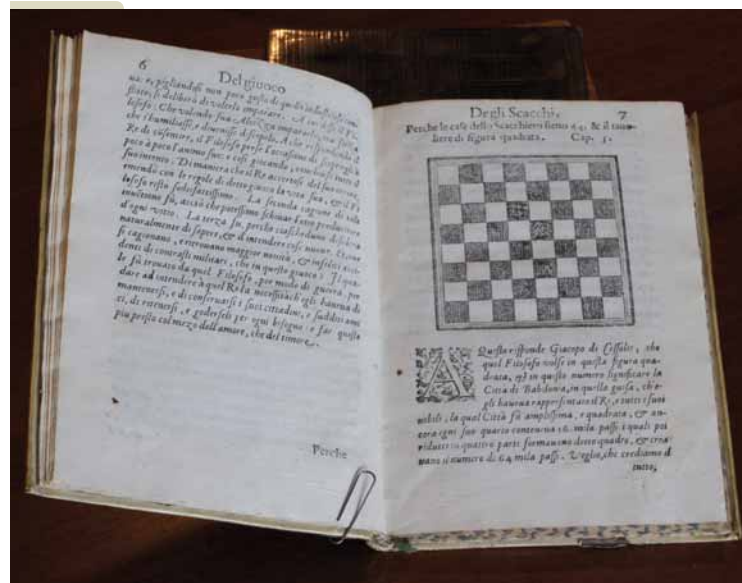 6
Del giuoco
ua: e, pigliandosi non poco gusto di quella industriosa in-
losofo: Che volendo sua Altezza impararlo, era
che s'humiliasse, e divenisse discepolo. A che rispondendo il
Re di cosi fare, il Filosofo prese l'occasione di
poco à poco l'animo suo: e così giocando, esseguì tutto il
suo intento. Di maniera che il Re accertosi del suo errore,
emendò con le regole di detto giuoco la vita sua, & il Fi-
losofo restò sodisfattissimo. La seconda cagione di tale
inuentione fù, acciò che potessimo schiuar l'otio produttore
d'ogni vitio. La terza fu, perche ciascheduno desidera
naturalmente di sapere, & d'intendere cose nuoue. Et one
si cagionano, e ritrouano maggior nouità, & infiniti acci-
denti di contrasti militari, che in questo giuoco?
le fù trouato da quel Filosofo, per modo di guerra, per
dare ad intendere à quel Re la necessità ch'egli haueua di
mantenersi, e di conseruarsi i suoi cittadini, e sudditi ami
ci, di ritenersi, e goderseli per ogni bisogno: e far questo
piu presto col mezo dell'amore, che del timore.
Perche
Degli Scacchi. 7
Perche le case dello Scacchiero sieno 64. & il tauo-
liere di figura quadrata. Cap. 5.
A Questo risponde Giacopo di Cessole, che
quel Filosofo volse in questa figura qua-
drata, & in questo numero significare la
Città di Babilonia, in quella guisa, ch'e-
gli haueua rappresentato il Re, e tutti i suoi
nobili, la qual Città fù amplissima, e quadrata, & an-
cora ogni suo quarto conteneua 16. mila passi: i quali poi
ridutti in quattro parti formauano detto quadro, & crea
uano il numero di 64 mila passi. Veglio, che crediamo il
tutto,